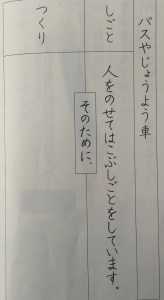 バスやじょうよう車
しごと
人をのせてはこぶしごとをしています。
そのために、
つくり